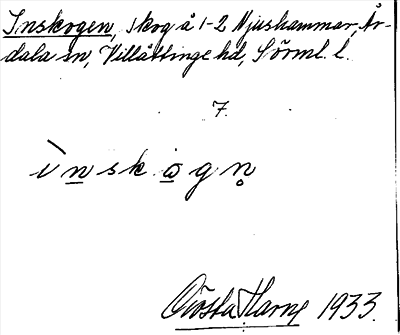 Inskogen, skog å 1-2 Njushammar, År-
dala sn, Villåttinge hd, Sörml. l.
7.
ìn̲sko̲gn̥
Gösta Harne 1933.